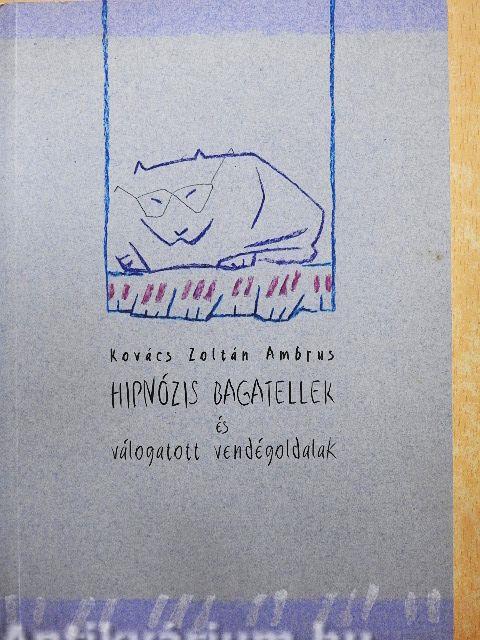 Kovács Zoltán Ambrus
HIPNÓZIS BAGATELLEK
és
válogatott vendégoldalak
Antikvárium.hu